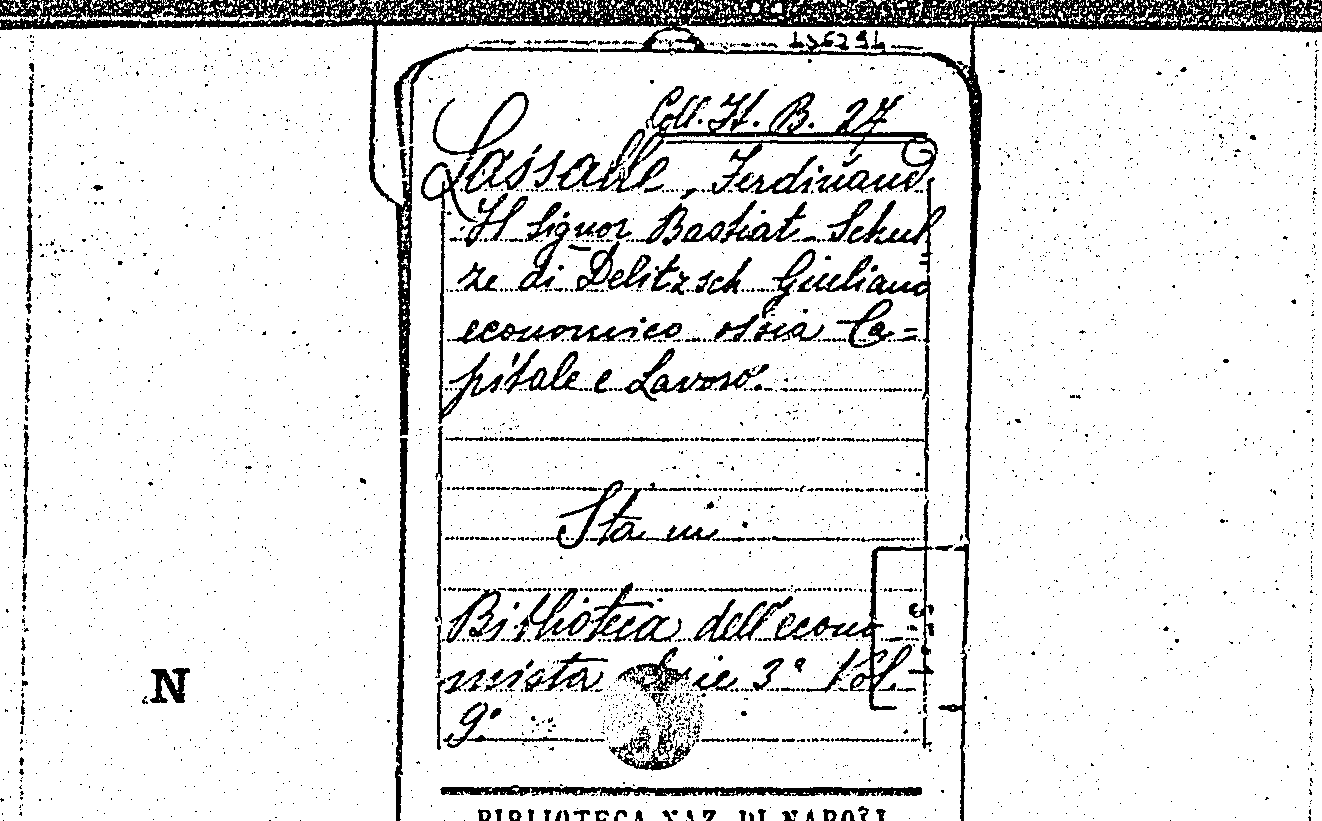 Coll. It. B. 27
Lassalle, Ferdinand.
Il Signor Bastiat-Schul
ze di Delitzsch Giuliano
economico ossia Ca=
pitale e Lavoro.
Sta in:
Biblioteca dell'econo
mista Serie 3ª Vol.
9º
N
BIBLIOTECA NAZ. DI NAPOLI